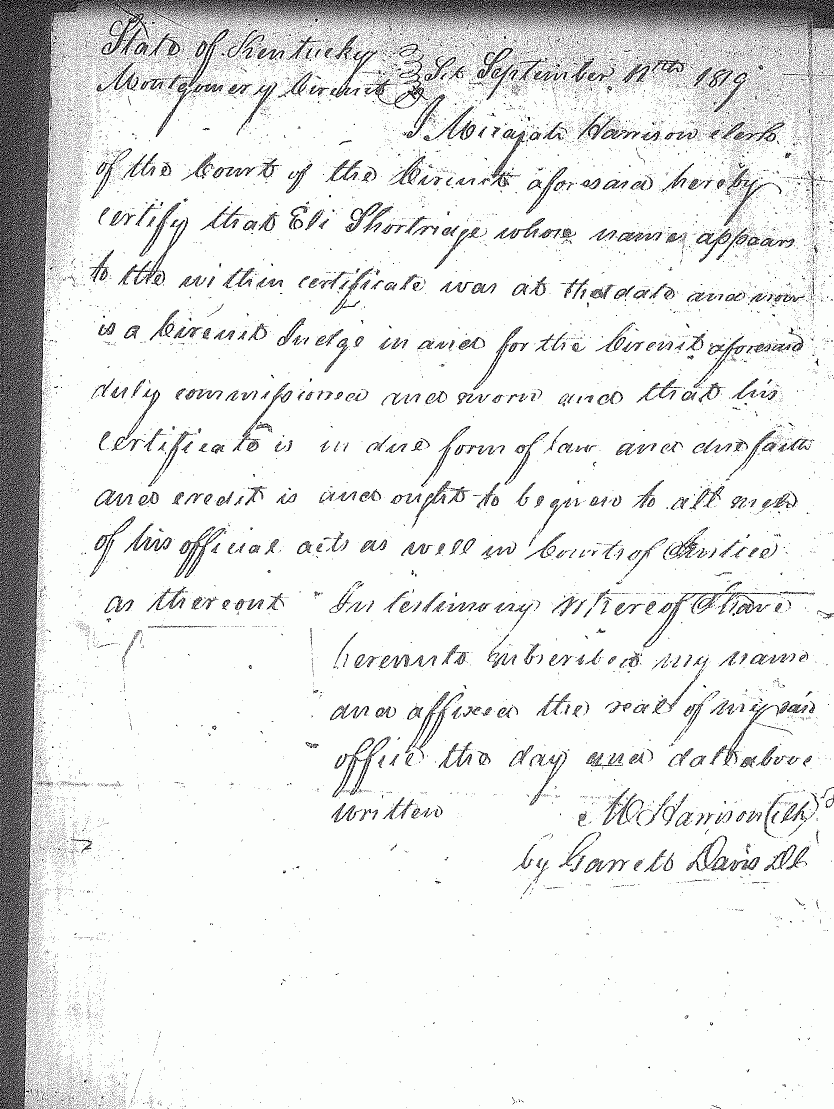 State of Kentucky
Montgomery Circuit } Sct September 11th 1819
I Micajah Harrison clerk
of the Court of the Circuit aforesaid hereby
certify that Eli Shortridge whose name appears
to the within certificate was at the date and now
is a Circuit Judge in and for the Circuit aforesaid
duly commissioned and sworn and that his
certificate is in due form of law and due faith
and credit is and ought to be given to all such
of his official acts as well in Courts of Justice
as thereout In testimony whereof I have
hereunto subscribed my name
and affixed the seal of my said
office the day and date above
written M Harrison Clk
by Garrett Davis DC